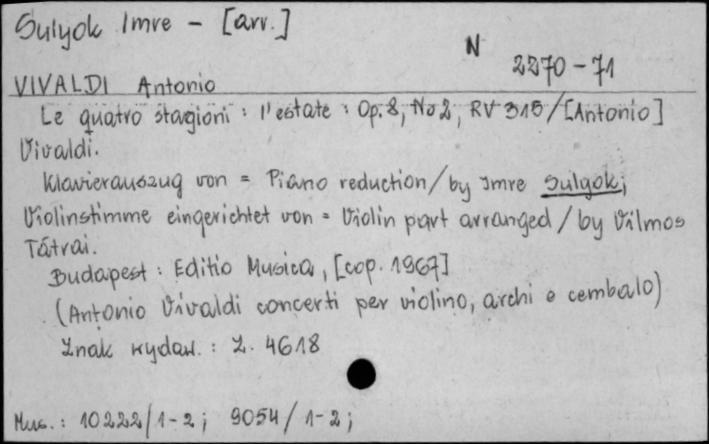 Sulyok Imre - [arr.]
N 2270-71
VIVALDI Antonio
Le quatro stagioni : l'estate : Op. 8, No 2, RV 315/[Antonio]
Vivaldi.
Klavierauszug von = Piano reduction/by Imre Sulyok;
Violinstimme eingerichtet von = Violin part arranged/by Vilmos
Tátrai.
Budapest : Editio Musica, [cop. 1967]
(Antonio Vivaldi concerti per violino, archi e cembalo)
Znak wydaw. : Z. 4618
Mus. : 10222/1-2 ; 9054/1-2 ;